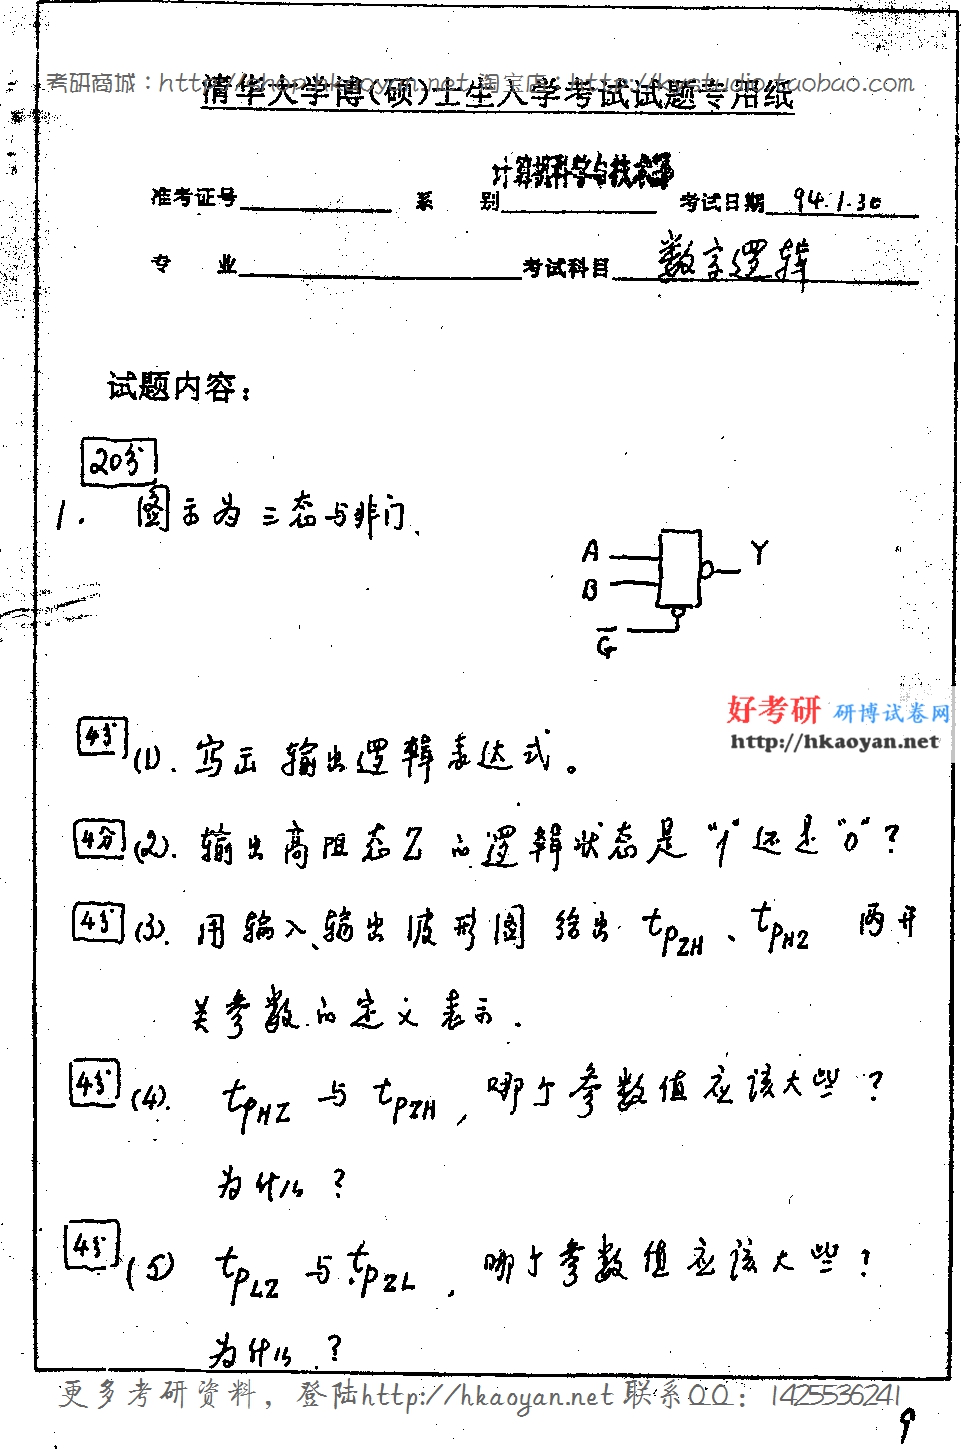 考研商城：http://shop.hkaoyan.net 淘宝店：http://kystudio.taobao.com
清华大学博(硕)士生入学考试试题专用纸
计算机科学与技术系
准考证号 系 别 考试日期 94.1.30
专 业 考试科目 数字逻辑
试题内容：
20分
1. 图示为三态与非门.
A
B
Y
G̅
好考研 研博试卷网
http://hkaoyan.net
4分 (1). 写出输出逻辑表达式。
4分 (2). 输出高阻态Z的逻辑状态是"1"还是"0"?
4分 (3). 用输入、输出波形图给出 tPZH、tPHZ 两开
关参数的定义表示.
4分 (4). tPHZ 与 tPZH, 哪个参数值应该大些?
为什么?
4分 (5) tPLZ 与 tPZL, 哪个参数值应该大些?
为什么.?
更多考研资料，登陆http://hkaoyan.net 联系QQ：1425536241
9